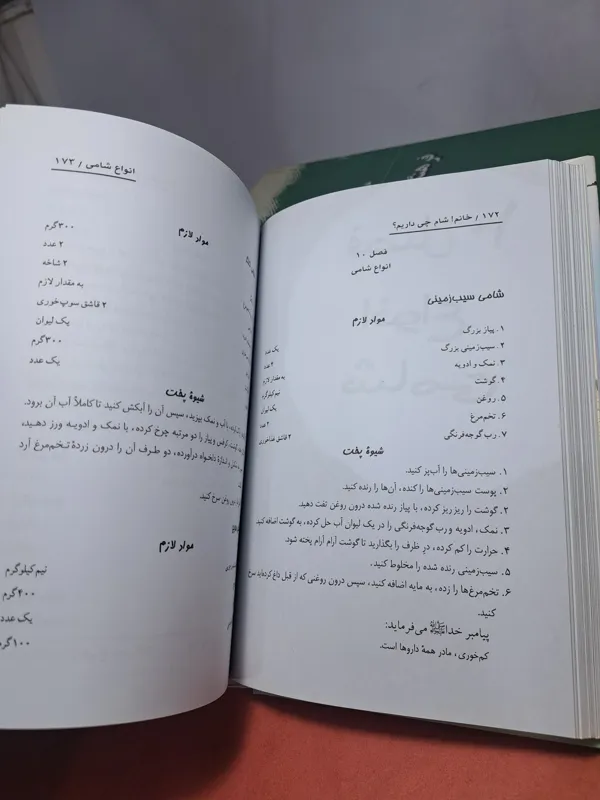 ۱۷۲ / خانم! شام چی داریم؟
فصل ۱۰
انواع شامی
شامی سیب‌زمینی
مواد لازم
۱. پیاز بزرگ یک عدد
۲. سیب‌زمینی بزرگ ۲ عدد
۳. نمک و ادویه به مقدار لازم
۴. گوشت نیم‌کیلوگرم
۵. روغن یک لیوان
۶. تخم‌مرغ ۲ عدد
۷. رب گوجه‌فرنگی ۲ قاشق غذاخوری
شیوهٔ پخت
۱. سیب‌زمینی‌ها را آب‌پز کنید.
۲. پوست سیب‌زمینی‌ها را کنده، آن‌ها را رنده کنید.
۲. گوشت را ریز ریز کرده، با پیاز رنده شده درون روغن تفت دهید.
۳. نمک، ادویه و رب گوجه‌فرنگی را در یک لیوان آب حل کرده، به گوشت اضافه کنید.
۴. حرارت را کم کرده، درِ ظرف را بگذارید تا گوشت آرام آرام پخته شود.
۵. سیب‌زمینی رنده شده را مخلوط کنید.
۶. تخم‌مرغ‌ها را زده، به مایه اضافه کنید، سپس درون روغنی که از قبل داغ کرده‌اید سرخ
کنید.
پیامبر خدا ﷺ می‌فرماید:
کم‌خوری، مادر همهٔ داروها است.
انواع شامی / ۱۷۳
مواد لازم
۳۰۰گرم
۲ عدد
۲ شاخه
به مقدار لازم
۲ قاشق سوپ‌خوری
یک لیوان
۳۰۰گرم
یک عدد
شیوهٔ پخت
با آب و نمک بپزید، سپس آن را آبکش کنید تا کاملاً آب آن برود.
گوشت، کرفس و پیاز را دو مرتبه چرخ کرده، با نمک و ادویه ورز دهید،
اندازهٔ دلخواه درآورده، دو طرف آن را درون زردهٔ تخم‌مرغ آرد
روغن سرخ کنید.
مواد لازم
نیم‌کیلوگرم
۴۰۰گرم
یک عدد
۱۰۰گرم